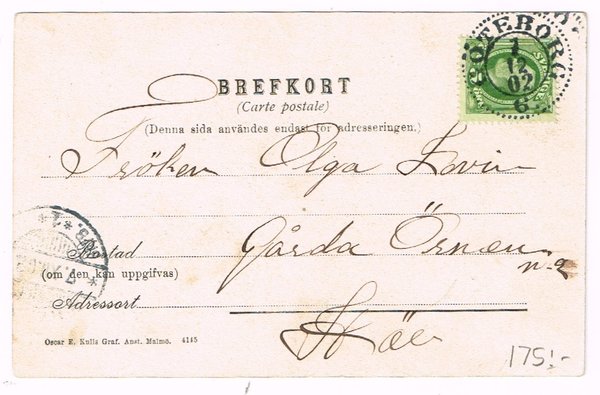 GÖTEBORG
1
12
02
6
BREFKORT
(Carte postale)
(Denna sida användes endast för adresseringen.)
Fröken Olga
Bostad
Gårda
n-2
(om den kan uppgifvas)
Adressort
Oscar E. Kulls Graf. Anst. Malmö. 4145
175:-